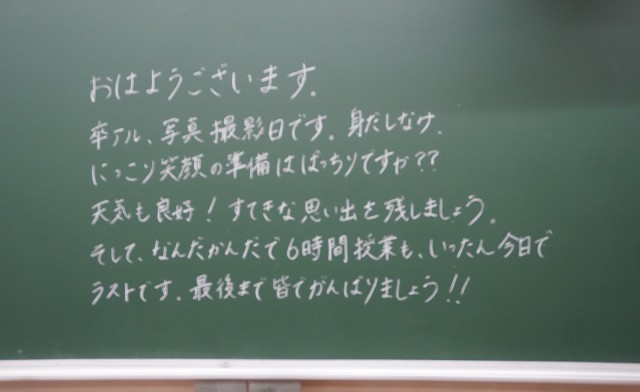 おはようございます。
卒アル、写真撮影日です。身だしなみ、
にっこり笑顔の準備はばっちりですか??
天気も良好！すてきな思い出を残しましょう。
そして、なんだかんだで6時間授業も、いったん今日で
ラストです。最後まで皆でがんばりましょう!!